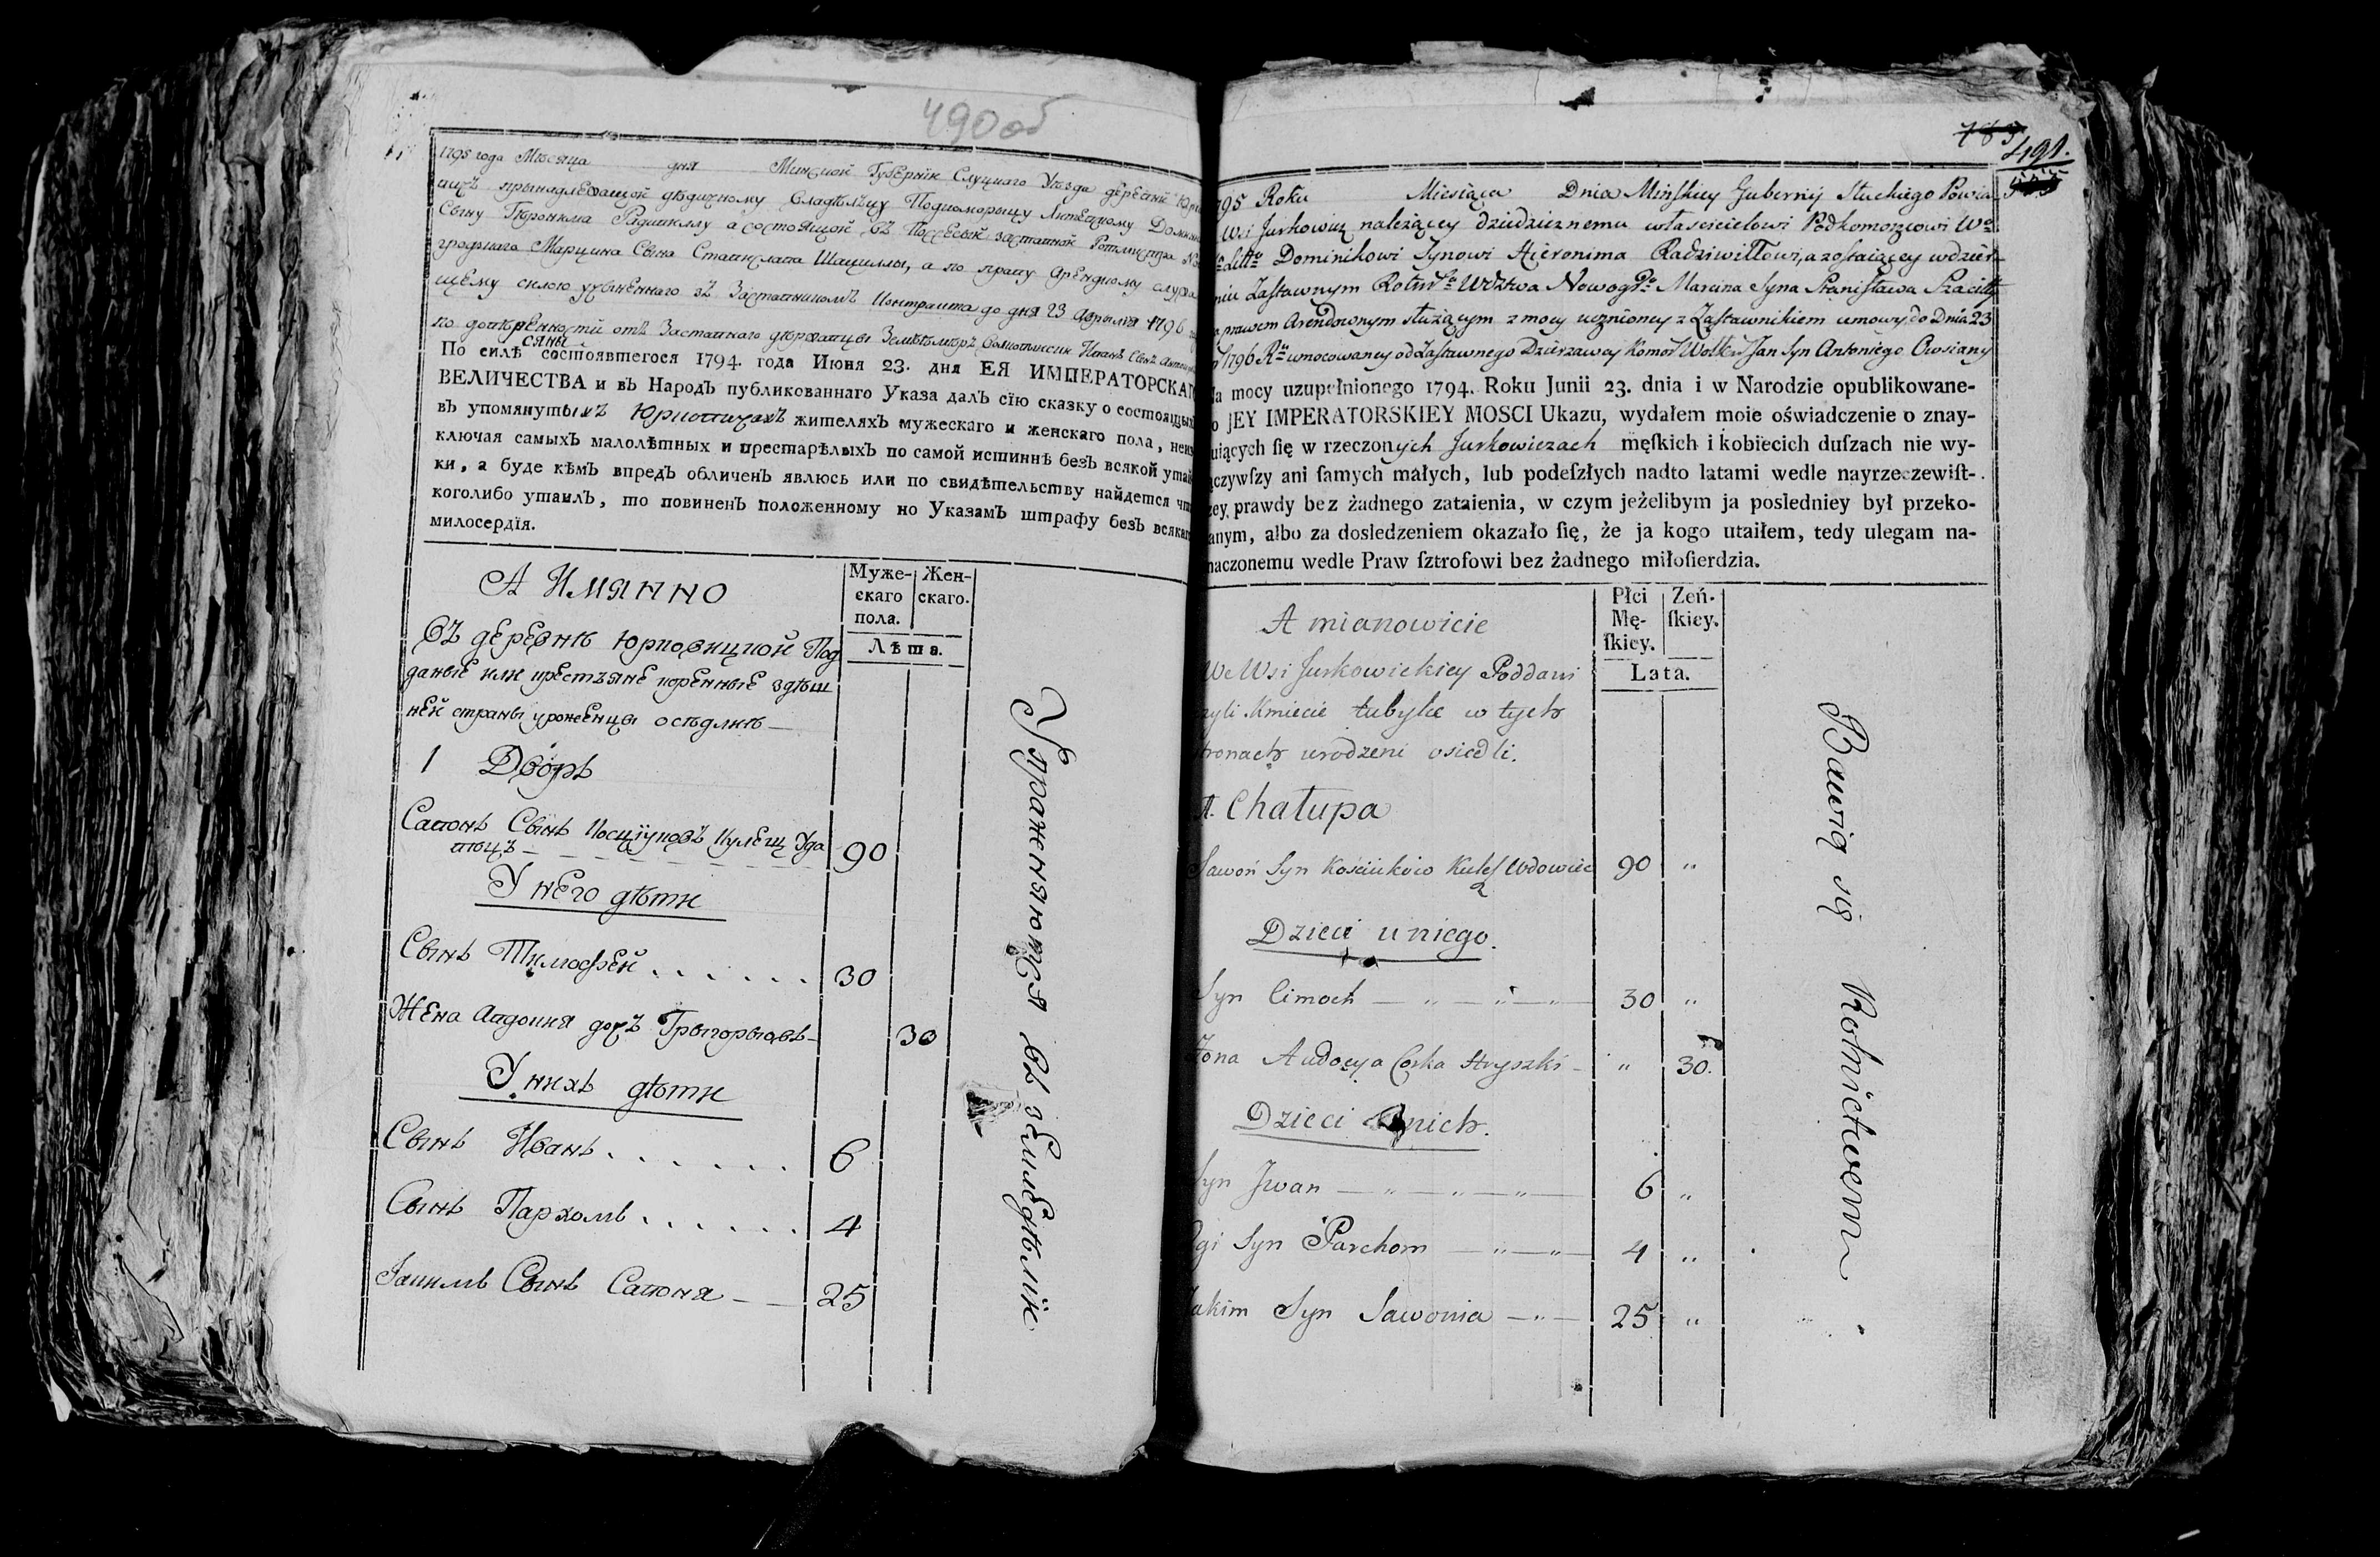 490об
1795 года Мѣсяца дня Минской Губернїи Слуцкаго Уѣзда деревни
принадлежащой дѣдичному Владѣлцу Подкоморыцу Литецкому
Сыну Гіеронима Радивиллу а состоящой въ Поссесыи заставной Ротмистра
Марцина Сына Станислава Шациллы, а по праву Арендному
силою учыненнаго зъ Заставникомъ Контракта до дня 23 Апрыля 1796
по довѣренности отъ Заставнаго державцы
По силѣ состоявшегося 1794. года Июня 23. дня ЕЯ ИМПЕРАТОРСКАГ
ВЕЛИЧЕСТВА и въ Народъ публикованнаго Указа далъ сїю сказку о состоящых
въ упомянутыхъ Юрковичахъ жителяхъ мужескаго и женскаго пола, неи
ключая самыхъ малолѣтныхъ и престарѣлыхъ по самой истиннѣ безъ всякой утай
ки, а буде кѣмъ впредъ обличенъ явлюсь или по свидѣтельству найдется что
коголибо утаилъ, то повиненъ положенному но Указамъ штрафу безъ всякаг
милосердїя.
А Имянно
Муже-
скаго
пола.
Жен-
скаго.
Лѣта.
Въ деревнѣ Юрковицкой Под
даные или крестъяне коренные здѣш
ней страны уроженцы оседлиѣ
1 Дворъ
Савонъ Сынъ Косцїуковъ Кулеш Уда
вецъ 90
У него дѣти
Сынъ Тимофей 30
Жена Авдокия дочъ Грыгорыовъ 30
У нихъ дѣти
Сынъ Иванъ 6
Сынъ Пархомъ 4
Іакимъ Сынъ Савоня 25
Упражняются въ земледѣлїи
491.
795 Roku Miesiąca Dnia Minskiey Gubernij Słuckiego Powia
Wsi Jurkowicz należącey dziedzicznemu własicielowi Podkomorzowi Wo
Litto Dominikowi Synowi Hieronima Radziwiłłowi, a zostaiącey w dzier
niu Zastawnym Rotmsa Wdztwa Nowogdo Marcina Syna Stanisława Szaciłły
prawem Arendownym służącym z mocy ucznioney z Zastawnikiem umowy, do Dnia 23
1796 Rku umocowaney od Zastawnego Dzierzawcy Jan Syn Antoniego Owsiany
Na mocy uzupełnionego 1794. Roku Junii 23. dnia i w Narodzie opublikowane-
o JEY IMPERATORSKIEY MOSCI Ukazu, wydałem moie oświadczenie o znay-
uiących ſię w rzeczonych Jurkowiczach męſkich i kobiecich duſzach nie wy-
ączywſzy ani ſamych małych, lub podeſzłych nadto latami wedle nayrzeczewiſt-
zey, prawdy bez żadnego zataienia, w czym jeżelibym ja posledniey był przeko-
anym, albo za dosledzeniem okazało ſię, że ja kogo utaiłem, tedy ulegam na-
naczonemu wedle Praw ſztrofowi bez żadnego miłoſierdzia.
A mianowicie
Płci
Mę-
ſkiey.
Zeń-
ſkiey.
Lata.
We Wsi Jurkowickiey Poddani
zyli Kmiecie tubylce w tych
tronach urodzeni osiedli.
1. Chałupa
Sawoń Syn Kościukow Kulesz Wdowiec 90 "
Dzieci u niego.
Syn Cimoch — " — " — " — 30 "
Zona Audocya Corka Hryszki " 30.
Dzieci u nich.
Syn Jwan — " — " — " — 6 "
gi Syn Parchom — " — " — 4 "
Jakim Syn Sawonia — " — 25 "
Bawią się Rolnictwem